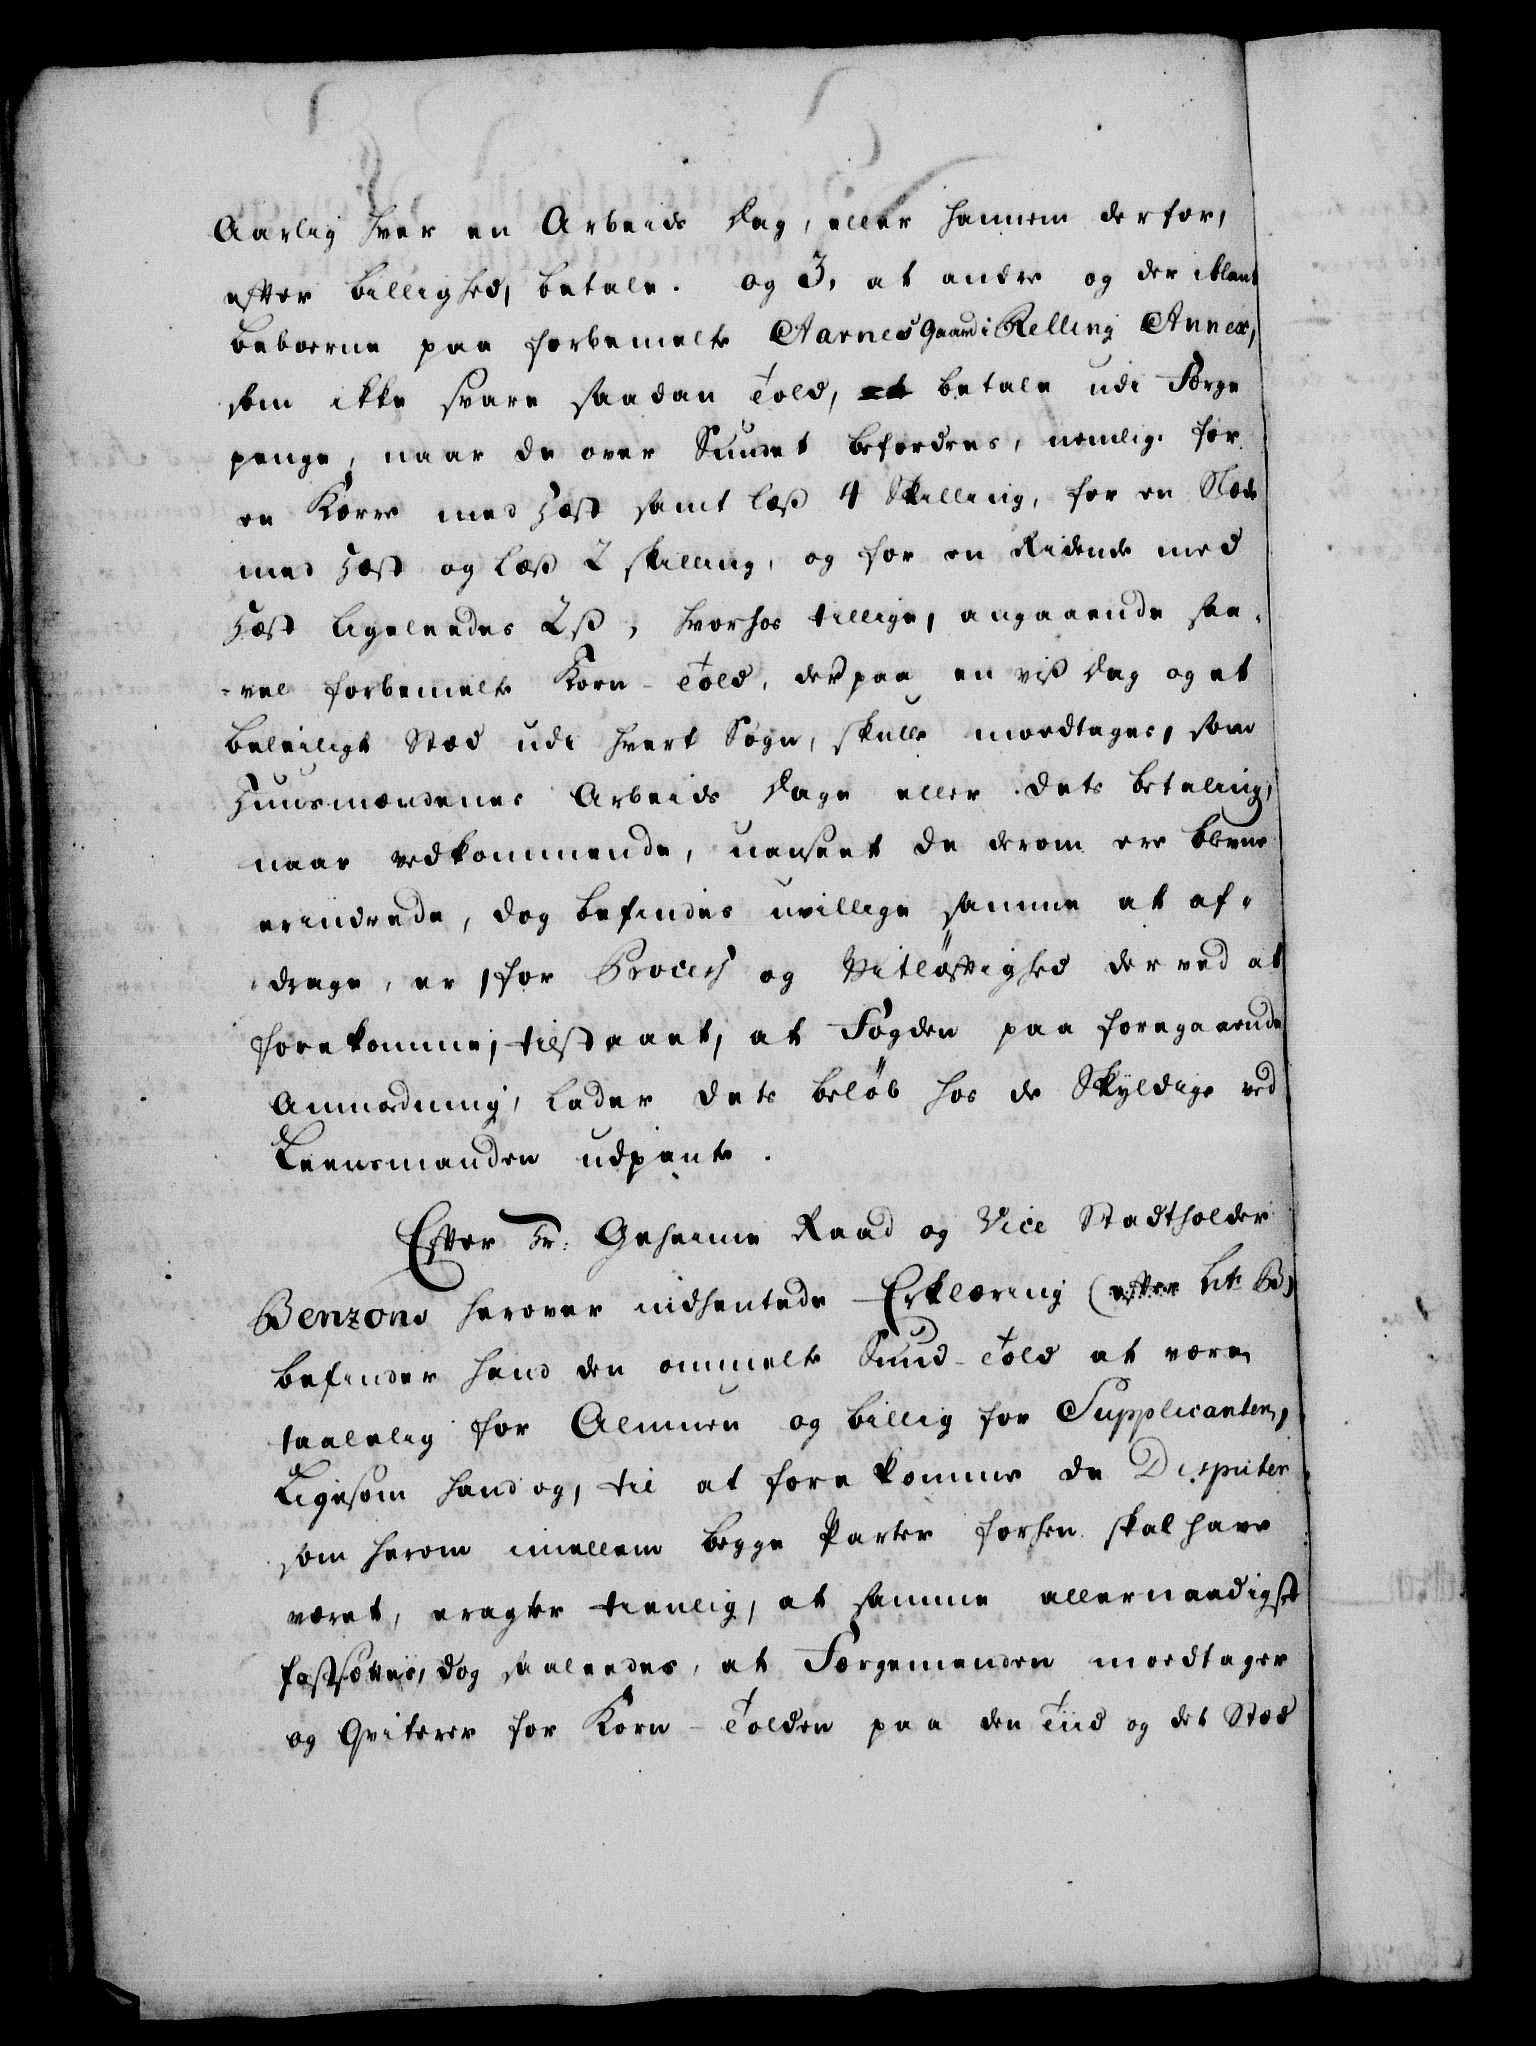 Aarlig hver en Arbeids Dag, eller hannem derfor,
efter billighed, betale. og 3, at andre og der iblant
Beboerne paa forbemelte Aarnes Gaard i Kelling Annex,
som ikke svare saadan Told, at betale udi Færge
penge, naar de over Sundet befordres, nemlig: for
en Kærre med Hæst samt læss 4 Skilling, for en Slæde
med Hæst og læss 2 skilling, og for en Ridende med
Hæst ligeleedes 2 ß, hvorhos tillige, angaaende saa-
-vel forbemelte Korn-Told, der paa en viss Dag og et
beleiligt Stæd udi hvert Sogn, skulle moedtages, som
Huusmændenes Arbeids Dage eller dets betaling,
naar vedkommende, uanseet de derom ere blevne
erindrede, dog befindes uvillige samme at af-
drage, er, for Process og Vitløftighed derved at
forekomme, tilstaaet, at Fogden paa foregaaende
Anmodning, lader dets beløb hos de Skyldige ved
Leensmanden udpante.
Efter Hr: Geheime Raad og Vice Stadtholder
Benzons herover indhentede Erklæring (efter Lit: B)
befinder hand den ommelte Sund-Told at være
taalelig for Almuen og billig for Supplicanten,
Ligesom hand og, til at forekomme de Disputer
som herom imellem begge Parter forhen skal have
været, eragter tienlig, at samme allernaadigst
fastsættes, dog saaleedes, at Færgemanden moedtager
og Qviterer for Korn-Tolden paa den Tiid og det Stæd